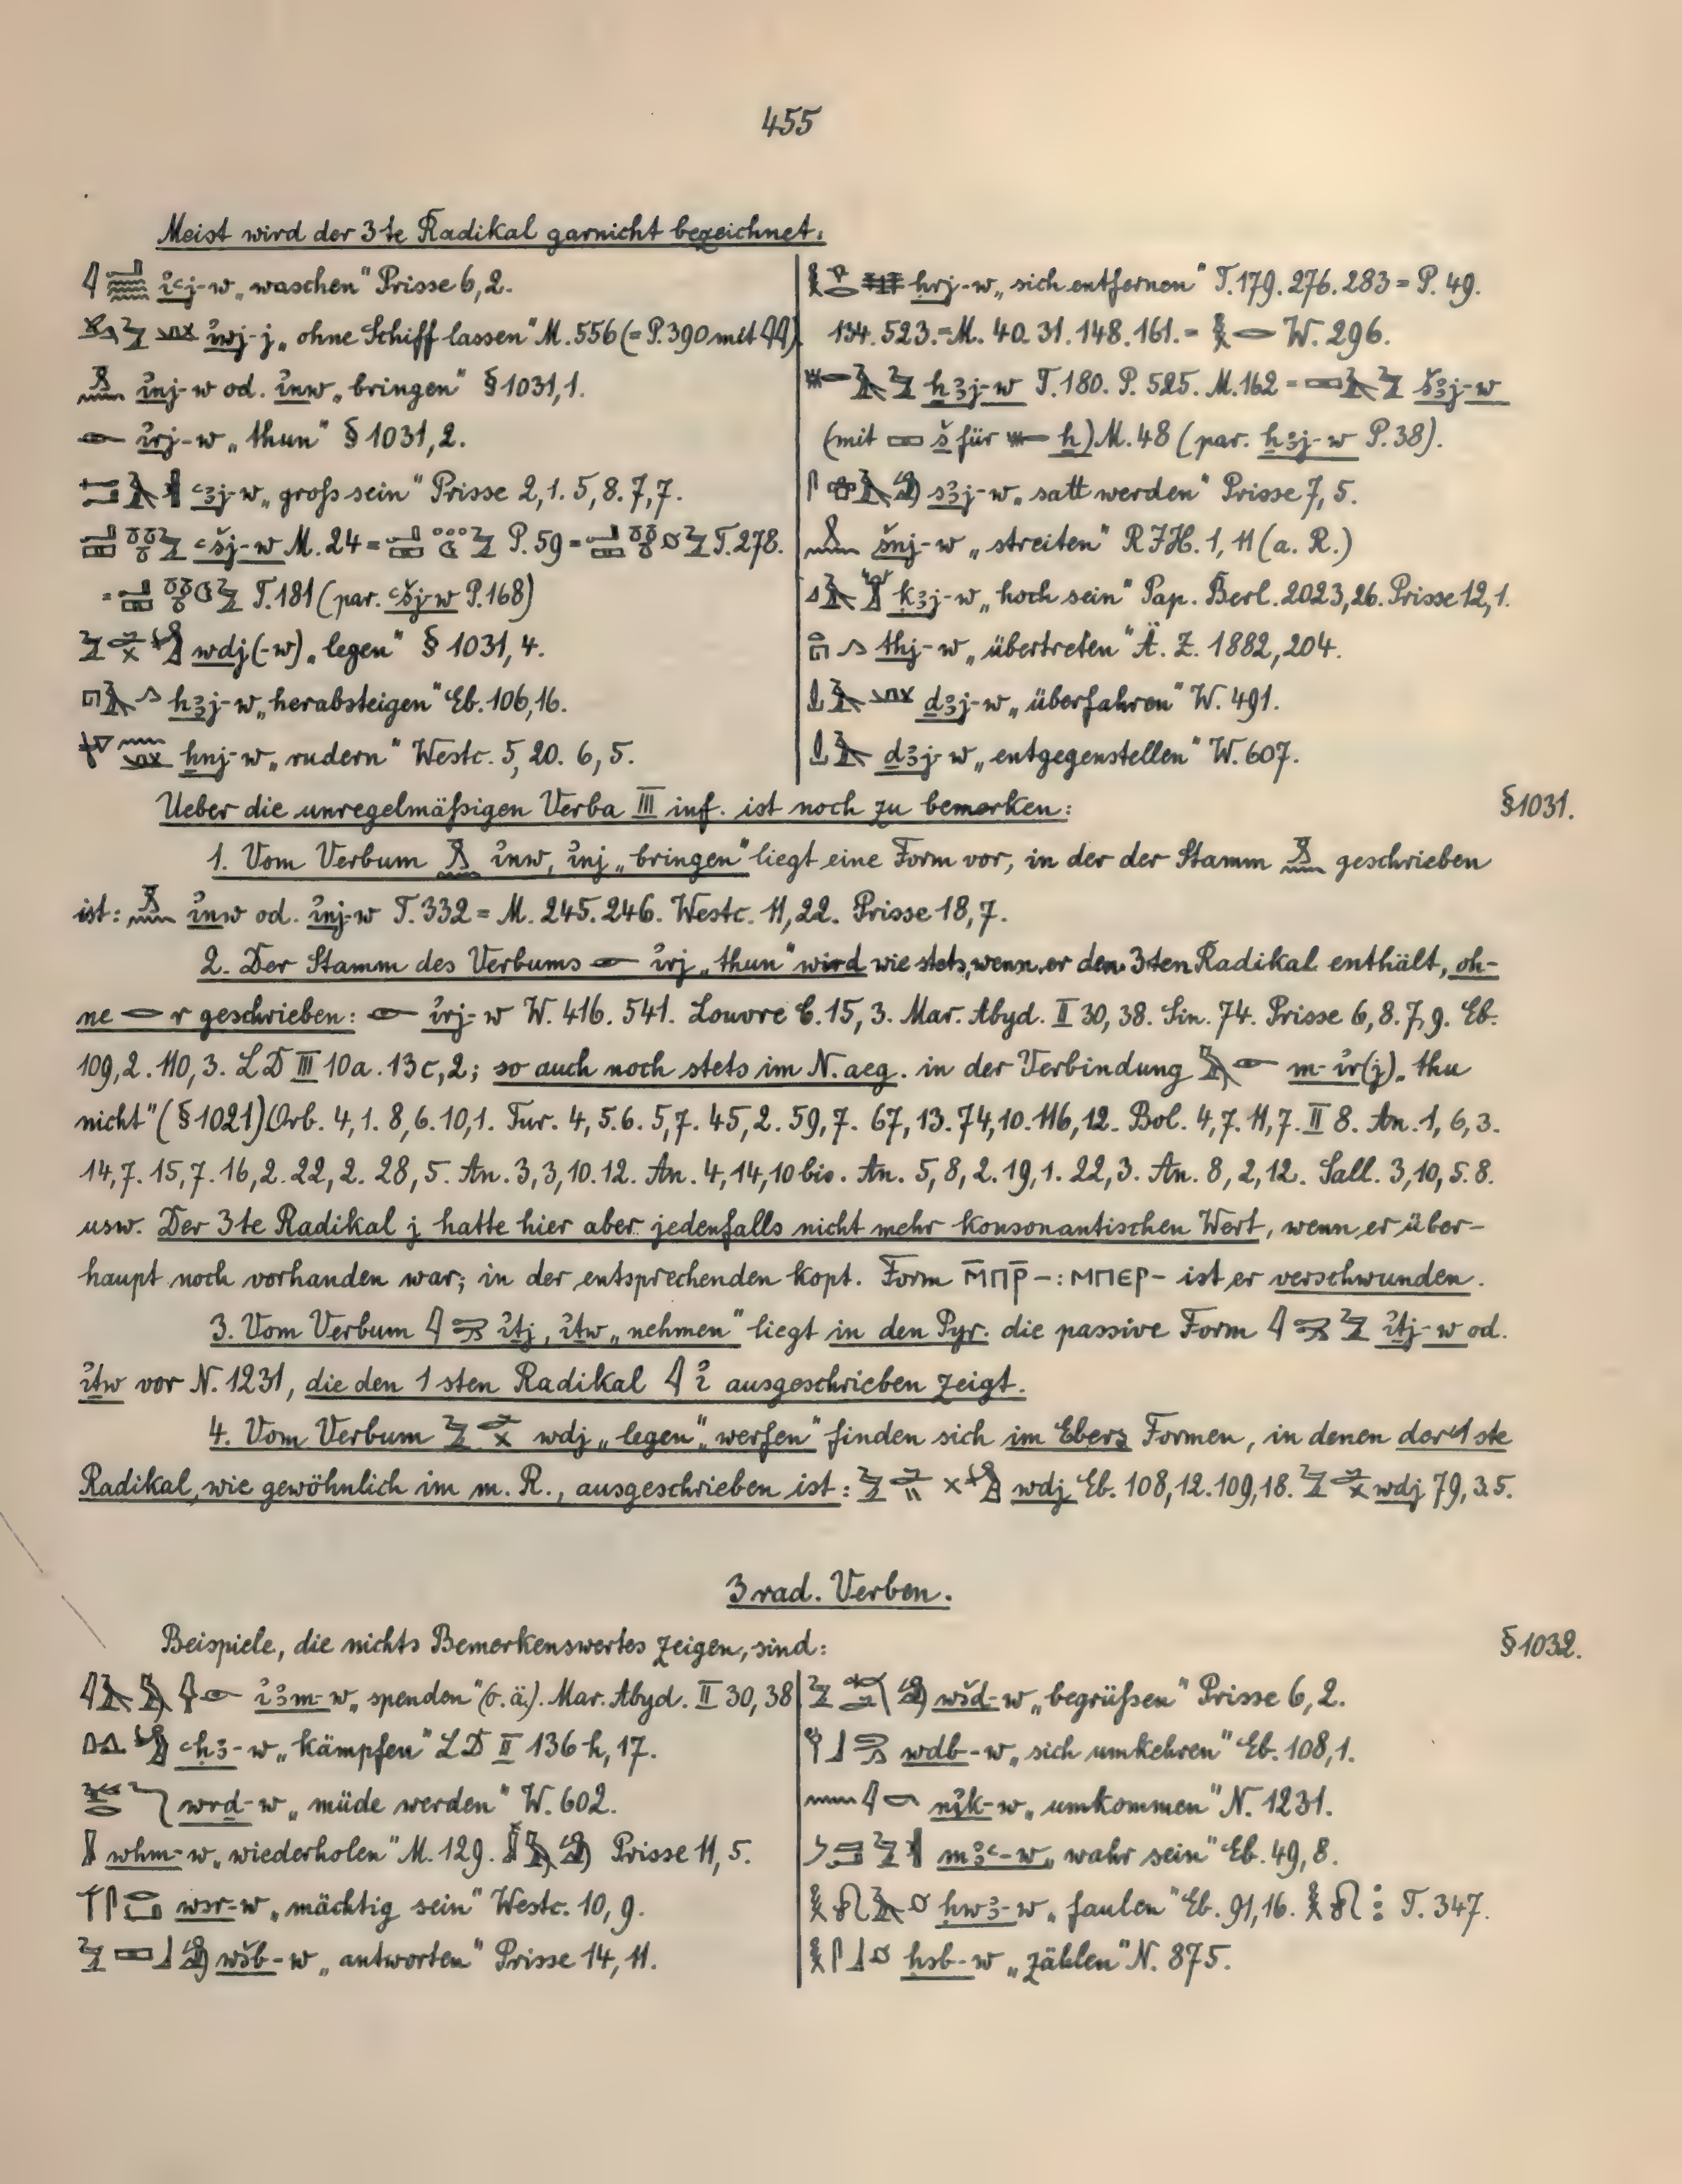 455
Meist wird der 3te Radikal garnicht bezeichnet:
i҆ꜥj-w „waschen" Prisse 6,2.
i҆wj-j „ohne Schiff lassen" M. 556 (= P. 390 mit 𓇋𓇋)
i҆nj-w od. i҆nw „bringen" § 1031,1.
i҆rj-w „thun" § 1031,2.
ꜥꜣj-w „groß sein" Prisse 2,1. 5,8. 7,7.
ꜥšj-w M. 24 = P. 59 = T. 278.
= T. 181 (par. ꜥšj-w P. 168)
wdj(-w) „legen" § 1031,4.
hꜣj-w „herabsteigen" Eb. 106,16.
ẖnj-w „rudern" Westc. 5,20. 6,5.
ḥrj-w „sich entfernen" T. 179. 276. 283 = P. 49.
134. 523. = M. 40. 31. 148. 161. = W. 296.
ẖꜣj-w T. 180. P. 525. M. 162 = šꜣj-w
(mit š für ẖ) M. 48 (par. ẖꜣj-w P. 38).
sꜣj-w „satt werden" Prisse 7,5.
šnj-w „streiten" RJH. 1,11 (a. R.)
ḳꜣj-w „hoch sein" Pap. Berl. 2023,26. Prisse 12,1.
thj-w „übertreten" Ä. Z. 1882, 204.
ḏꜣj-w „überfahren" W. 491.
ḏꜣj-w „entgegenstellen" W. 607.
Ueber die unregelmäßigen Verba III inf. ist noch zu bemerken: § 1031.
1. Vom Verbum i҆nw, i҆nj „bringen" liegt eine Form vor, in der der Stamm geschrieben
ist: i҆nw od. i҆nj-w T. 332 = M. 245. 246. Westc. 11,22. Prisse 18,7.
2. Der Stamm des Verbums i҆rj „thun" wird wie stets, wenn er den 3ten Radikal enthält, oh-
ne r geschrieben: i҆rj-w W. 416. 541. Louvre C. 15,3. Mar. Abyd. II 30,38. Sin. 74. Prisse 6,8. 7,9. Eb.
109,2. 110,3. LD III 10a. 13c,2; so auch noch stets im N.aeg. in der Verbindung m-i҆r(j) „thu
nicht" (§ 1021) Orb. 4,1. 8,6. 10,1. Tur. 4,5.6. 5,7. 45,2. 59,7. 67,13. 74,10. 116,12. Bol. 4,7. 11,7. II 8. An. 1, 6,3.
14,7. 15,7. 16,2. 22,2. 28,5. An. 3,3,10.12. An. 4,14,10 bis. An. 5,8,2. 19,1. 22,3. An. 8,2,12. Sall. 3,10,5.8.
usw. Der 3te Radikal j hatte hier aber jedenfalls nicht mehr konsonantischen Wert, wenn er über-
haupt noch vorhanden war; in der entsprechenden kopt. Form ⲙ̄ⲡⲣ̄-: ⲙⲡⲉⲣ- ist er verschwunden.
3. Vom Verbum 𓇋 i҆ṯj, i҆ṯw „nehmen" liegt in den Pyr. die passive Form 𓇋 i҆ṯj-w od.
i҆ṯw vor N. 1231, die den 1sten Radikal 𓇋 i҆ ausgeschrieben zeigt.
4. Vom Verbum wdj „legen" „werfen" finden sich im Ebers Formen, in denen der 1ste
Radikal, wie gewöhnlich im m. R., ausgeschrieben ist: wdj Eb. 108,12. 109,18. wdj 79,3.5.
3rad. Verben.
Beispiele, die nichts Bemerkenswertes zeigen, sind: § 1032.
i҆ꜣm-w „spenden" (o. ä.). Mar. Abyd. II 30,38
ꜥḥꜣ-w „kämpfen" LD II 136h, 17.
wrd-w „müde werden" W. 602.
wḥm-w „wiederholen" M. 129. Prisse 11,5.
wsr-w „mächtig sein" Westc. 10,9.
wšb-w „antworten" Prisse 14,11.
wšd-w „begrüßen" Prisse 6,2.
wdb-w „sich umkehren" Eb. 108,1.
ni҆k-w „umkommen" N. 1231.
mꜣꜥ-w „wahr sein" Eb. 49,8.
ḥwꜣ-w „faulen" Eb. 91,16. T. 347.
ḥsb-w „zählen" N. 875.